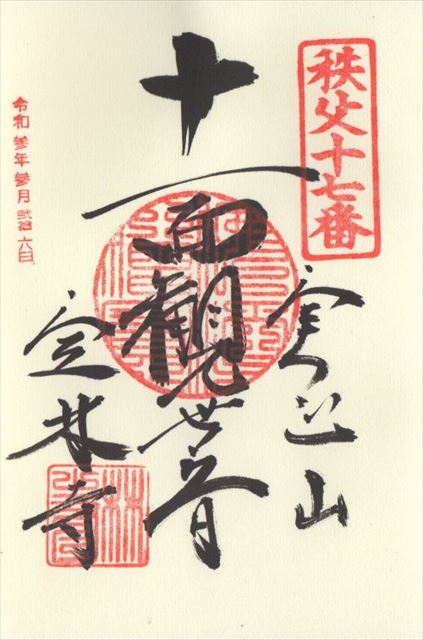 秩父十七番
実正山
十一面觀世音
定林寺
令和参年参月弐拾六日